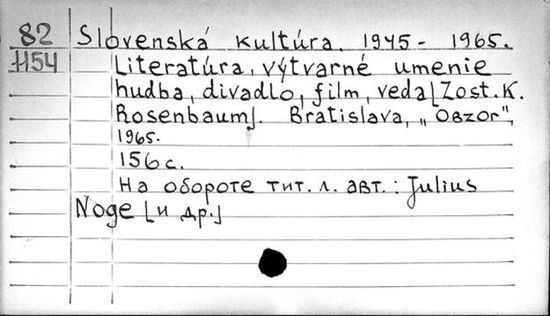 82 Slovenská kultúra. 1945 - 1965.
H54 Literatúra, výtvarné umenie
hudba, divadlo, film, veda[Zost. K.
Rosenbaum]. Bratislava, „Obzor",
1965.
156 с.
На обороте тит. л. авт.: Julius
Noge [и др.]